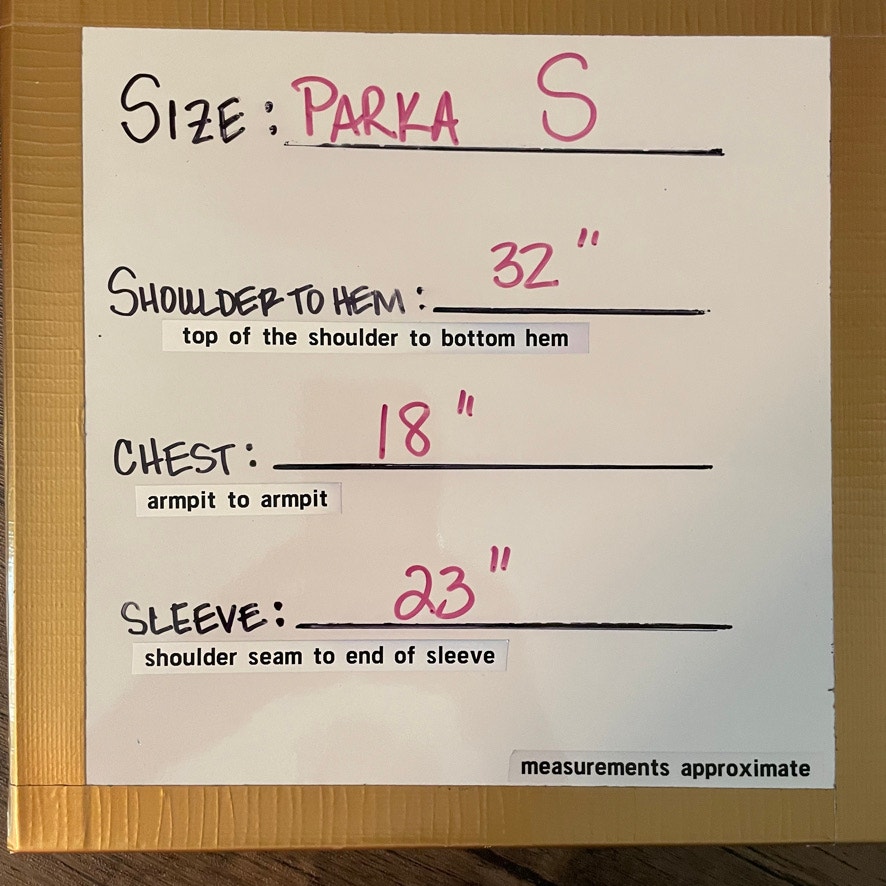 SIZE: PARKA S
SHOULDER TO HEM: 32"
top of the shoulder to bottom hem
CHEST: 18"
armpit to armpit
SLEEVE: 23"
shoulder seam to end of sleeve
measurements approximate